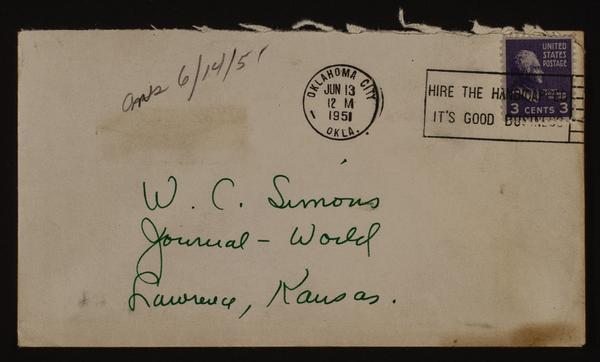 Ans 6/14/51
OKLAHOMA CITY
JUN 13
12 M
1951
OKLA.
HIRE THE HANDICAPPED
IT'S GOOD BUSINESS
UNITED
STATES
POSTAGE
3 CENTS 3
W. C. Simons
Journal - World
Lawrence, Kansas.